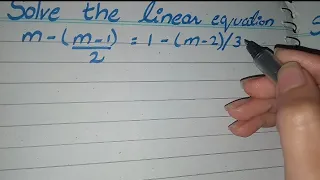 Solve the linear equation
m - (m-1)/2 = 1 - (m-2)/3